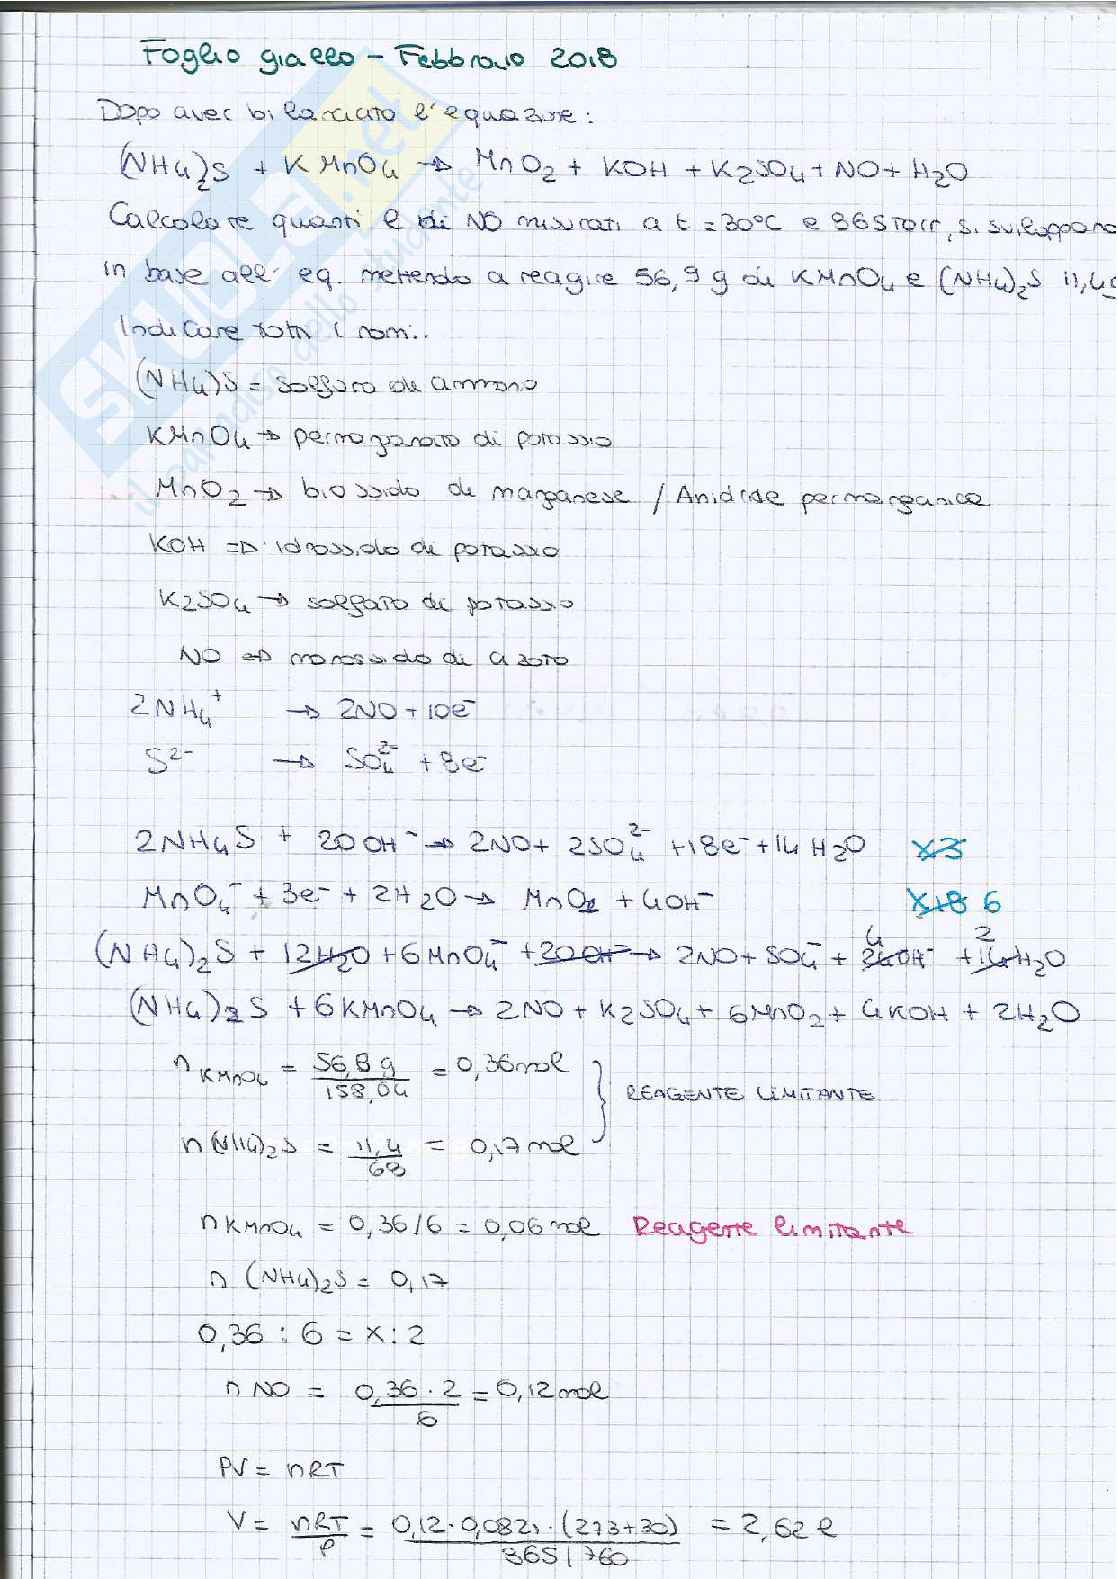 Foglio giallo – Febbraio 2018
Dopo aver bilanciato l'equazione:
(NH4)2S + KMnO4 → MnO2 + KOH + K2SO4 + NO + H2O
Calcolare quanti l di NO misurati a t = 30°C e 865 Torr, si sviluppano
in base all' eq. mettendo a reagire 56,9 g di KMnO4 e (NH4)2S 11,4g
Indicare tutti i nomi..
(NH4)S = solfuro di ammonio
KMnO4 → permanganato di potassio
MnO2 → biossido di manganese / Anidride permanganica
KOH ⇒ idrossido di potassio
K2SO4 → solfato di potassio
NO ⇒ monossido di azoto
2NH4+ → 2NO + 10e-
S2- → SO4 2- + 8e-
2NH4S + 20OH- → 2NO + 2SO4 2- + 18e- + 14H2O x3
MnO4- + 3e- + 2H2O → MnO2 + 4OH- x18 6
(NH4)2S + 12H2O + 6MnO4- + 20OH- → 2NO + SO4- + 24OH- 4 + 14H2O 2
(NH4)2S + 6KMnO4 → 2NO + K2SO4 + 6MnO2 + 4KOH + 2H2O
nKMnO4 = 56,8g / 158,04 = 0,36 mol
REAGENTE LIMITANTE
n(NH4)2S = 11,4 / 68 = 0,17 mol
nKMnO4 = 0,36/6 = 0,06 mol Reagente limitante
n (NH4)2S = 0,17
0,36 : 6 = x : 2
n NO = 0,36 · 2 / 6 = 0,12 mol
PV = nRT
V = nRT / P = 0,12 · 0,0821 · (273+30) / 865 / 760 = 2,62 l
SKUOLA.net